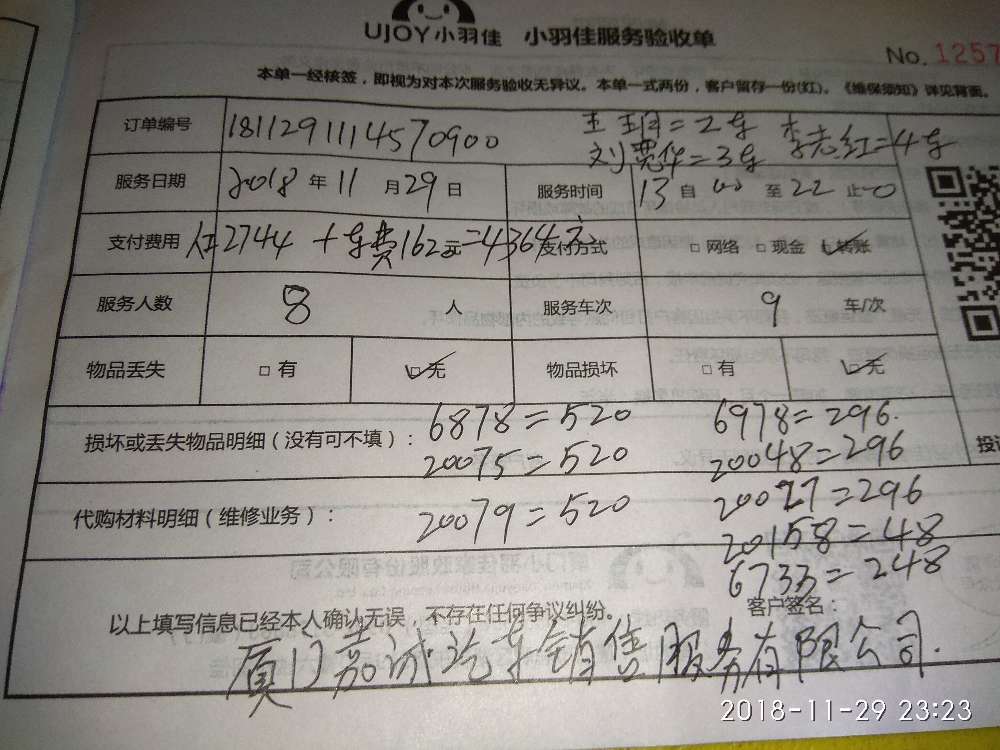 UJOY小羽佳 小羽佳服务验收单
No. 1257
本单一经核签，即视为对本次服务验收无异议。本单一式两份，客户留存一份(红)。《维保须知》详见背面。
订单编号 181129111457​0900 王玥=2车 李志红=4车
刘惠华=3车
服务日期 2018 年 11 月 29 日 服务时间 13 自 00 至 22 止 0
支付费用 2744 + 车费162元=4364元 支付方式 □网络 □现金 ☑转账
服务人数 8 人 服务车次 9 车/次
物品丢失 □有 ☑无 物品损坏 □有 ☑无
损坏或丢失物品明细（没有可不填）： 6878=520 6978=296
20075=520 20048=296
代购材料明细（维修业务）： 20079=520 20027=296
20158=48
6733=248
以上填写信息已经本人确认无误，不存在任何争议纠纷。 客户签名：
厦门嘉诚汽车销售服务有限公司.
2018-11-29 23:23